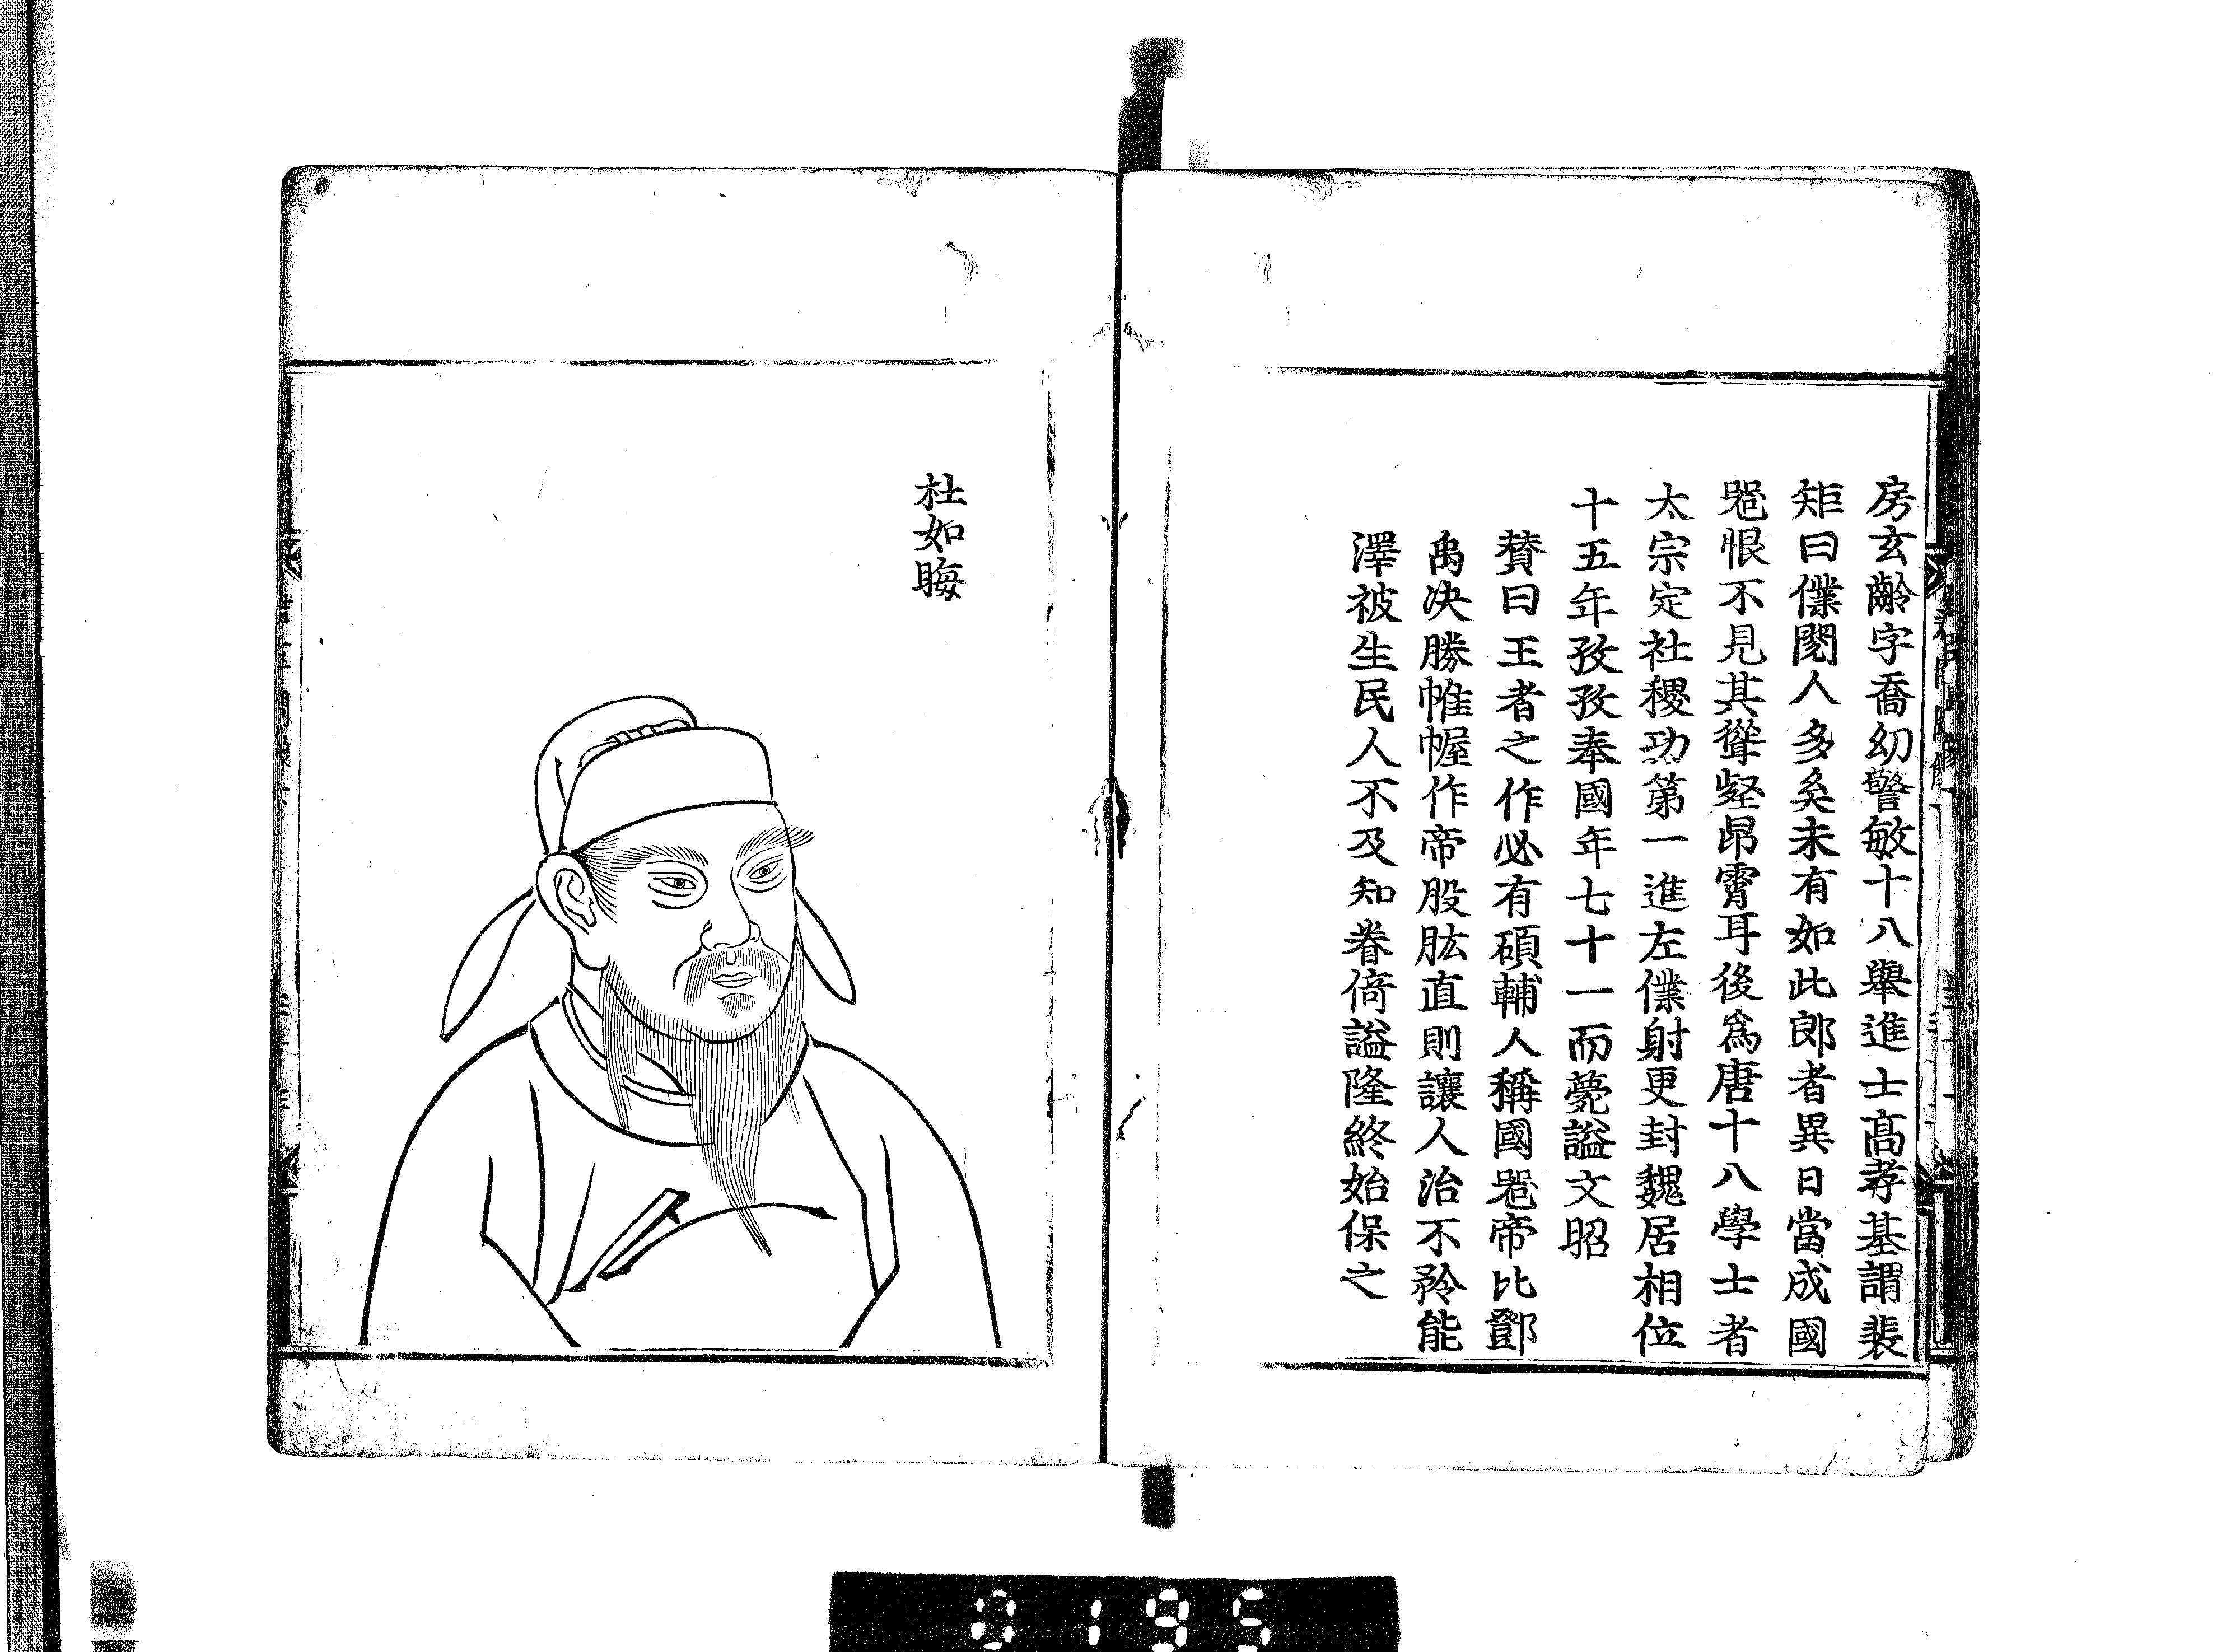 房玄齡字喬幼警敏十八舉進士髙孝基謂裴
矩曰僕閱人多矣未有如此郎者異日當成國
噐恨不見其聳壑昂霄耳後爲唐十八學士者
太宗定社稷功第一進左僕射更封魏居相位
十五年孜孜奉國年七十一而薨謚文昭
賛曰王者之作必有碩輔人稱國噐帝比鄧
禹决勝帷幄作帝股肱直則讓人治不矜能
澤被生民人不及知眷倚謚隆終始保之
杜如晦
0195